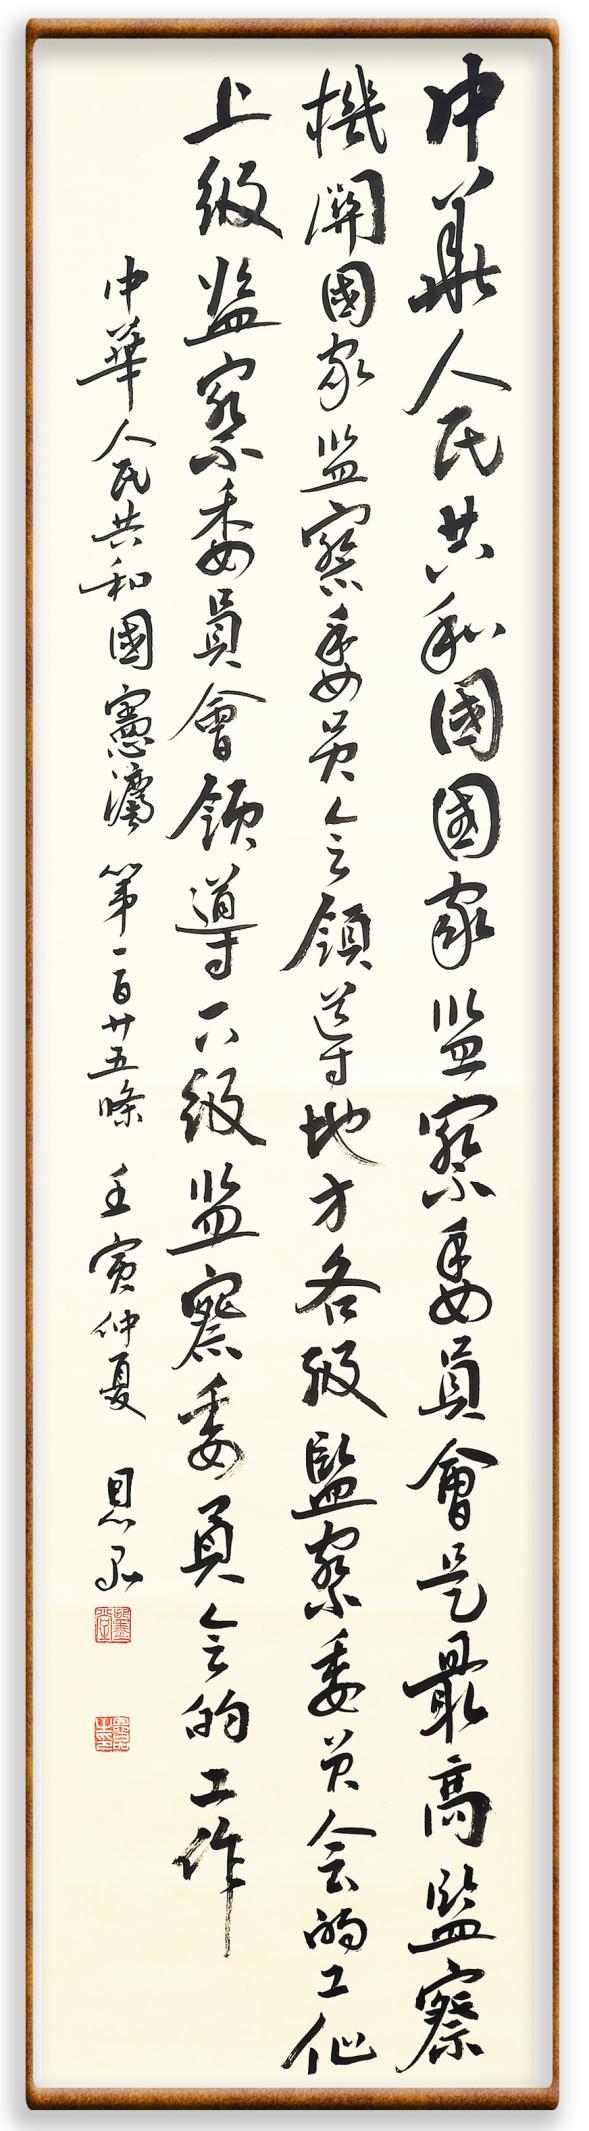 中華人民共和國國家监察委員會是最高監察
機關國家监察委员会領導地方各級監察委员会的工作
上級监察委員會領導下級监察委員会的工作
中華人民共和國憲灋第一百廿五條 壬寅仲夏